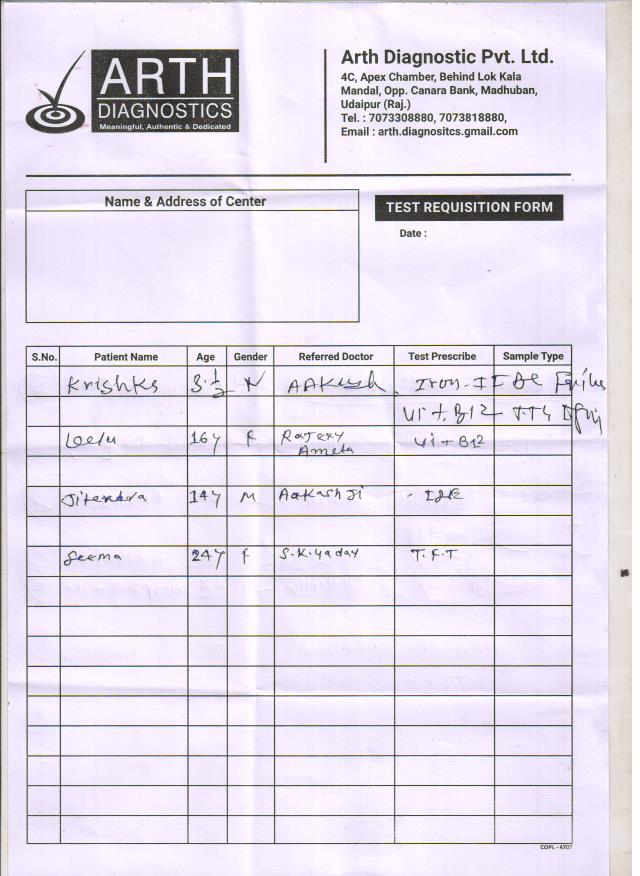 ARTH
DIAGNOSTICS
Meaningful, Authentic & Dedicated
Arth Diagnostic Pvt. Ltd.
4C, Apex Chamber, Behind Lok Kala
Mandal, Opp. Canara Bank, Madhuban,
Udaipur (Raj.)
Tel. : 7073308880, 7073818880,
Email : arth.diagnositcs.gmail.com
Name & Address of Center
TEST REQUISITION FORM
Date :
S.No. Patient Name Age Gender Referred Doctor Test Prescribe Sample Type
Krishks 3½ AAKash Iron
Vit B12
16y F Vit B12
Ameta
Jitendra 14y M Aakash Ji
Seema 24y F S.K.yadav T.F.T
COPL - 4707